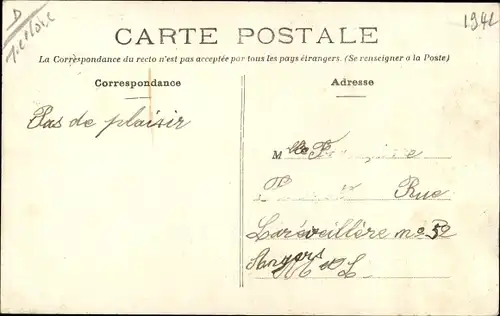 D
1941
CARTE POSTALE
La Correspondance du recto n'est pas acceptée par tous les pays étrangers. (Se renseigner a la Poste)
Correspondance
Adresse
Pas de plaisir
Mlle
Rue
Laréveillère no 50
Angers
M et L